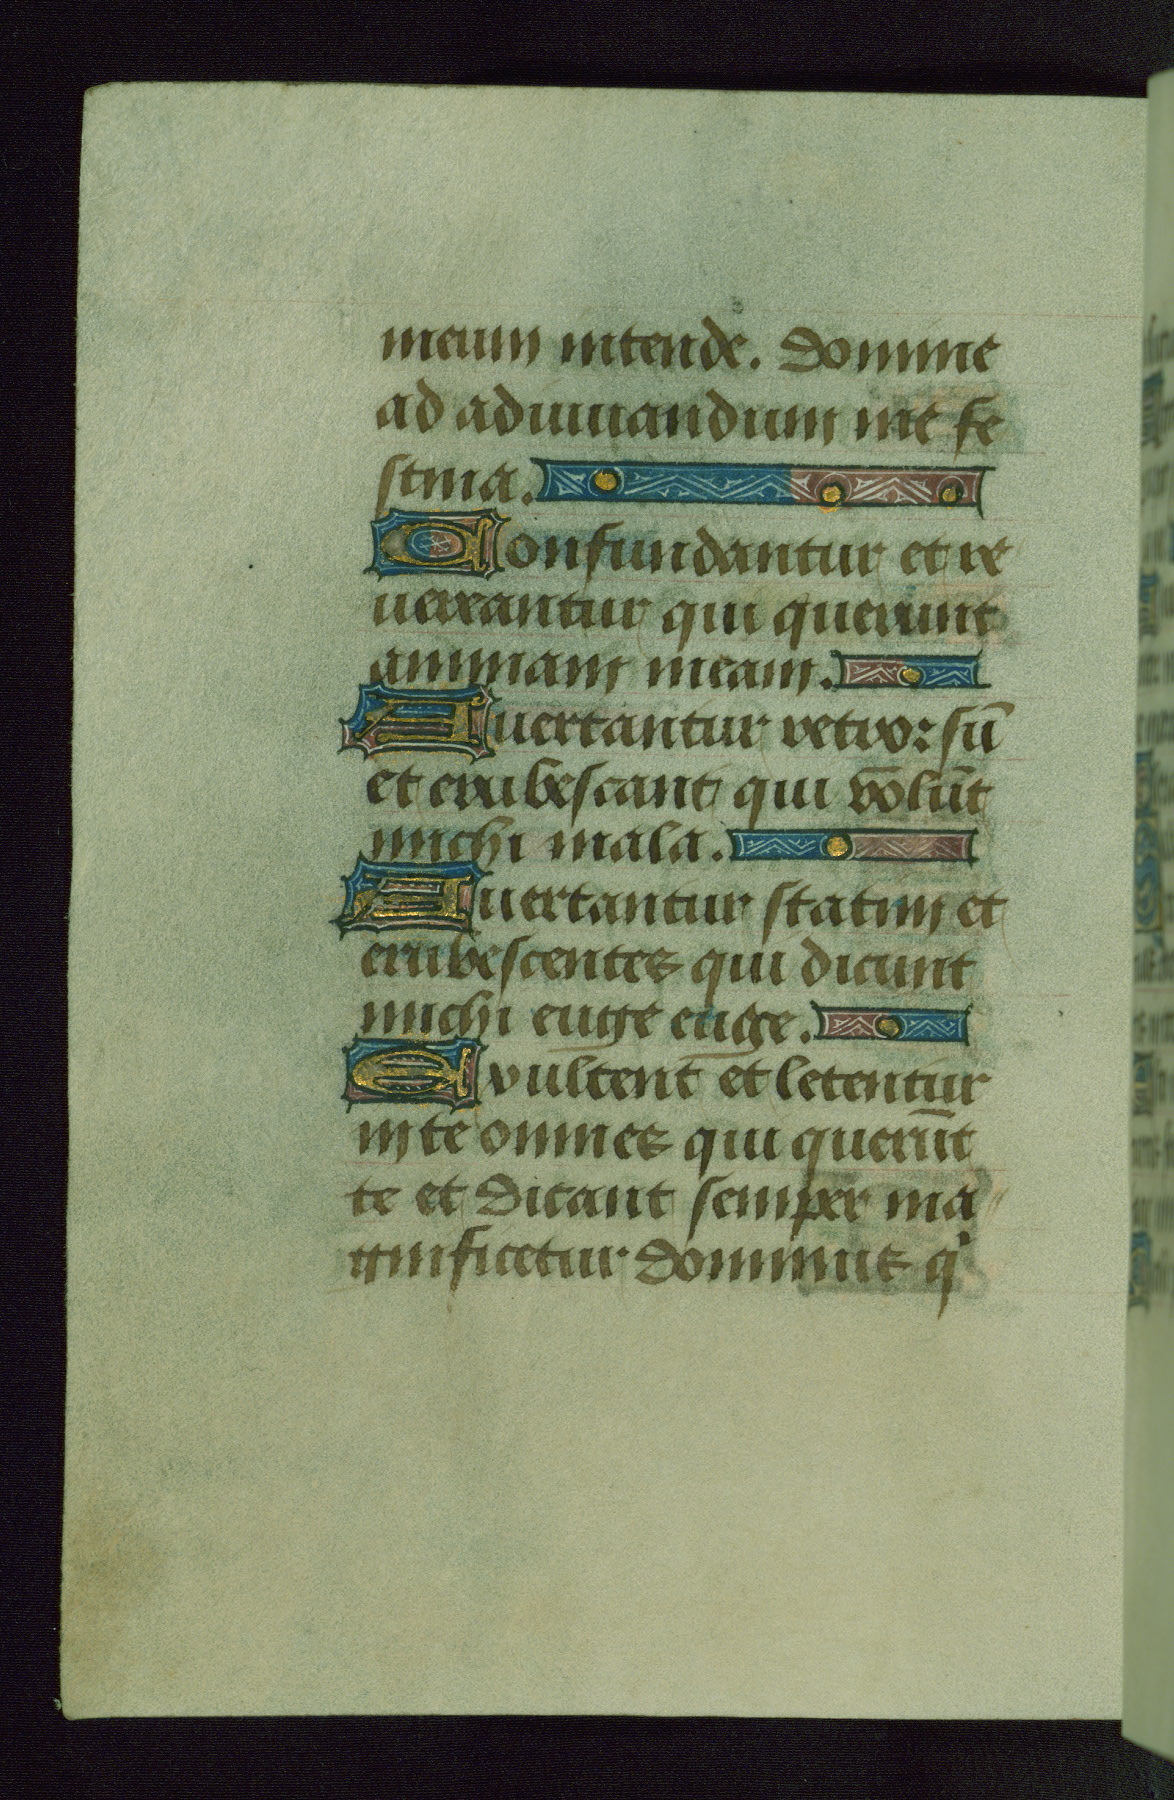 meum intende. Domine
ad adiuuandum me fe
stina.
Confundantur et re
uereantur qui querunt
animam meam.
Auertantur retro: sū
et erubescant qui volūt
michi mala.
Auertantur statim et
erubescentes qui dicunt
michi euge euge.
Exultent et letentur
in te omnes qui querūt
te et dicant semper ma
gnificetur dominus q